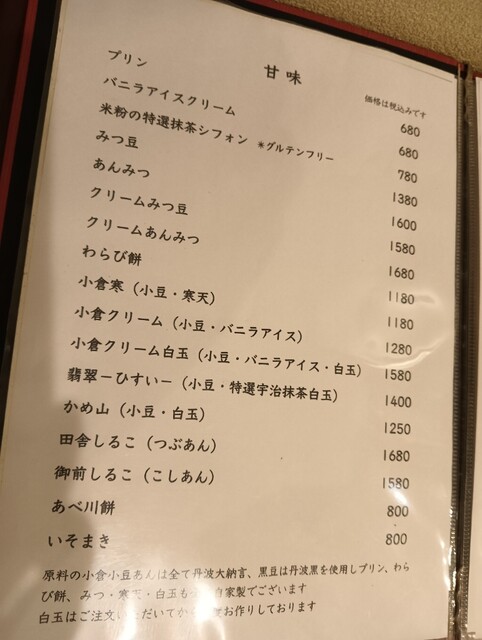 甘味
価格は税込みです
プリン 680
バニラアイスクリーム 680
米粉の特選抹茶シフォン *グルテンフリー 780
みつ豆 1380
あんみつ 1600
クリームみつ豆 1580
クリームあんみつ 1680
わらび餅 1180
小倉寒（小豆・寒天） 1180
小倉クリーム（小豆・バニラアイス） 1280
小倉クリーム白玉（小豆・バニラアイス・白玉） 1580
翡翠－ひすい－（小豆・特選宇治抹茶白玉） 1400
かめ山（小豆・白玉） 1250
田舎しるこ（つぶあん） 1680
御前しるこ（こしあん） 1580
あべ川餅 800
いそまき 800
原料の小倉小豆あんは全て丹波大納言、黒豆は丹波黒を使用しプリン、わら
び餅、みつ・寒天・白玉も 自家製でございます
白玉はご注文いただいてから お作りしております